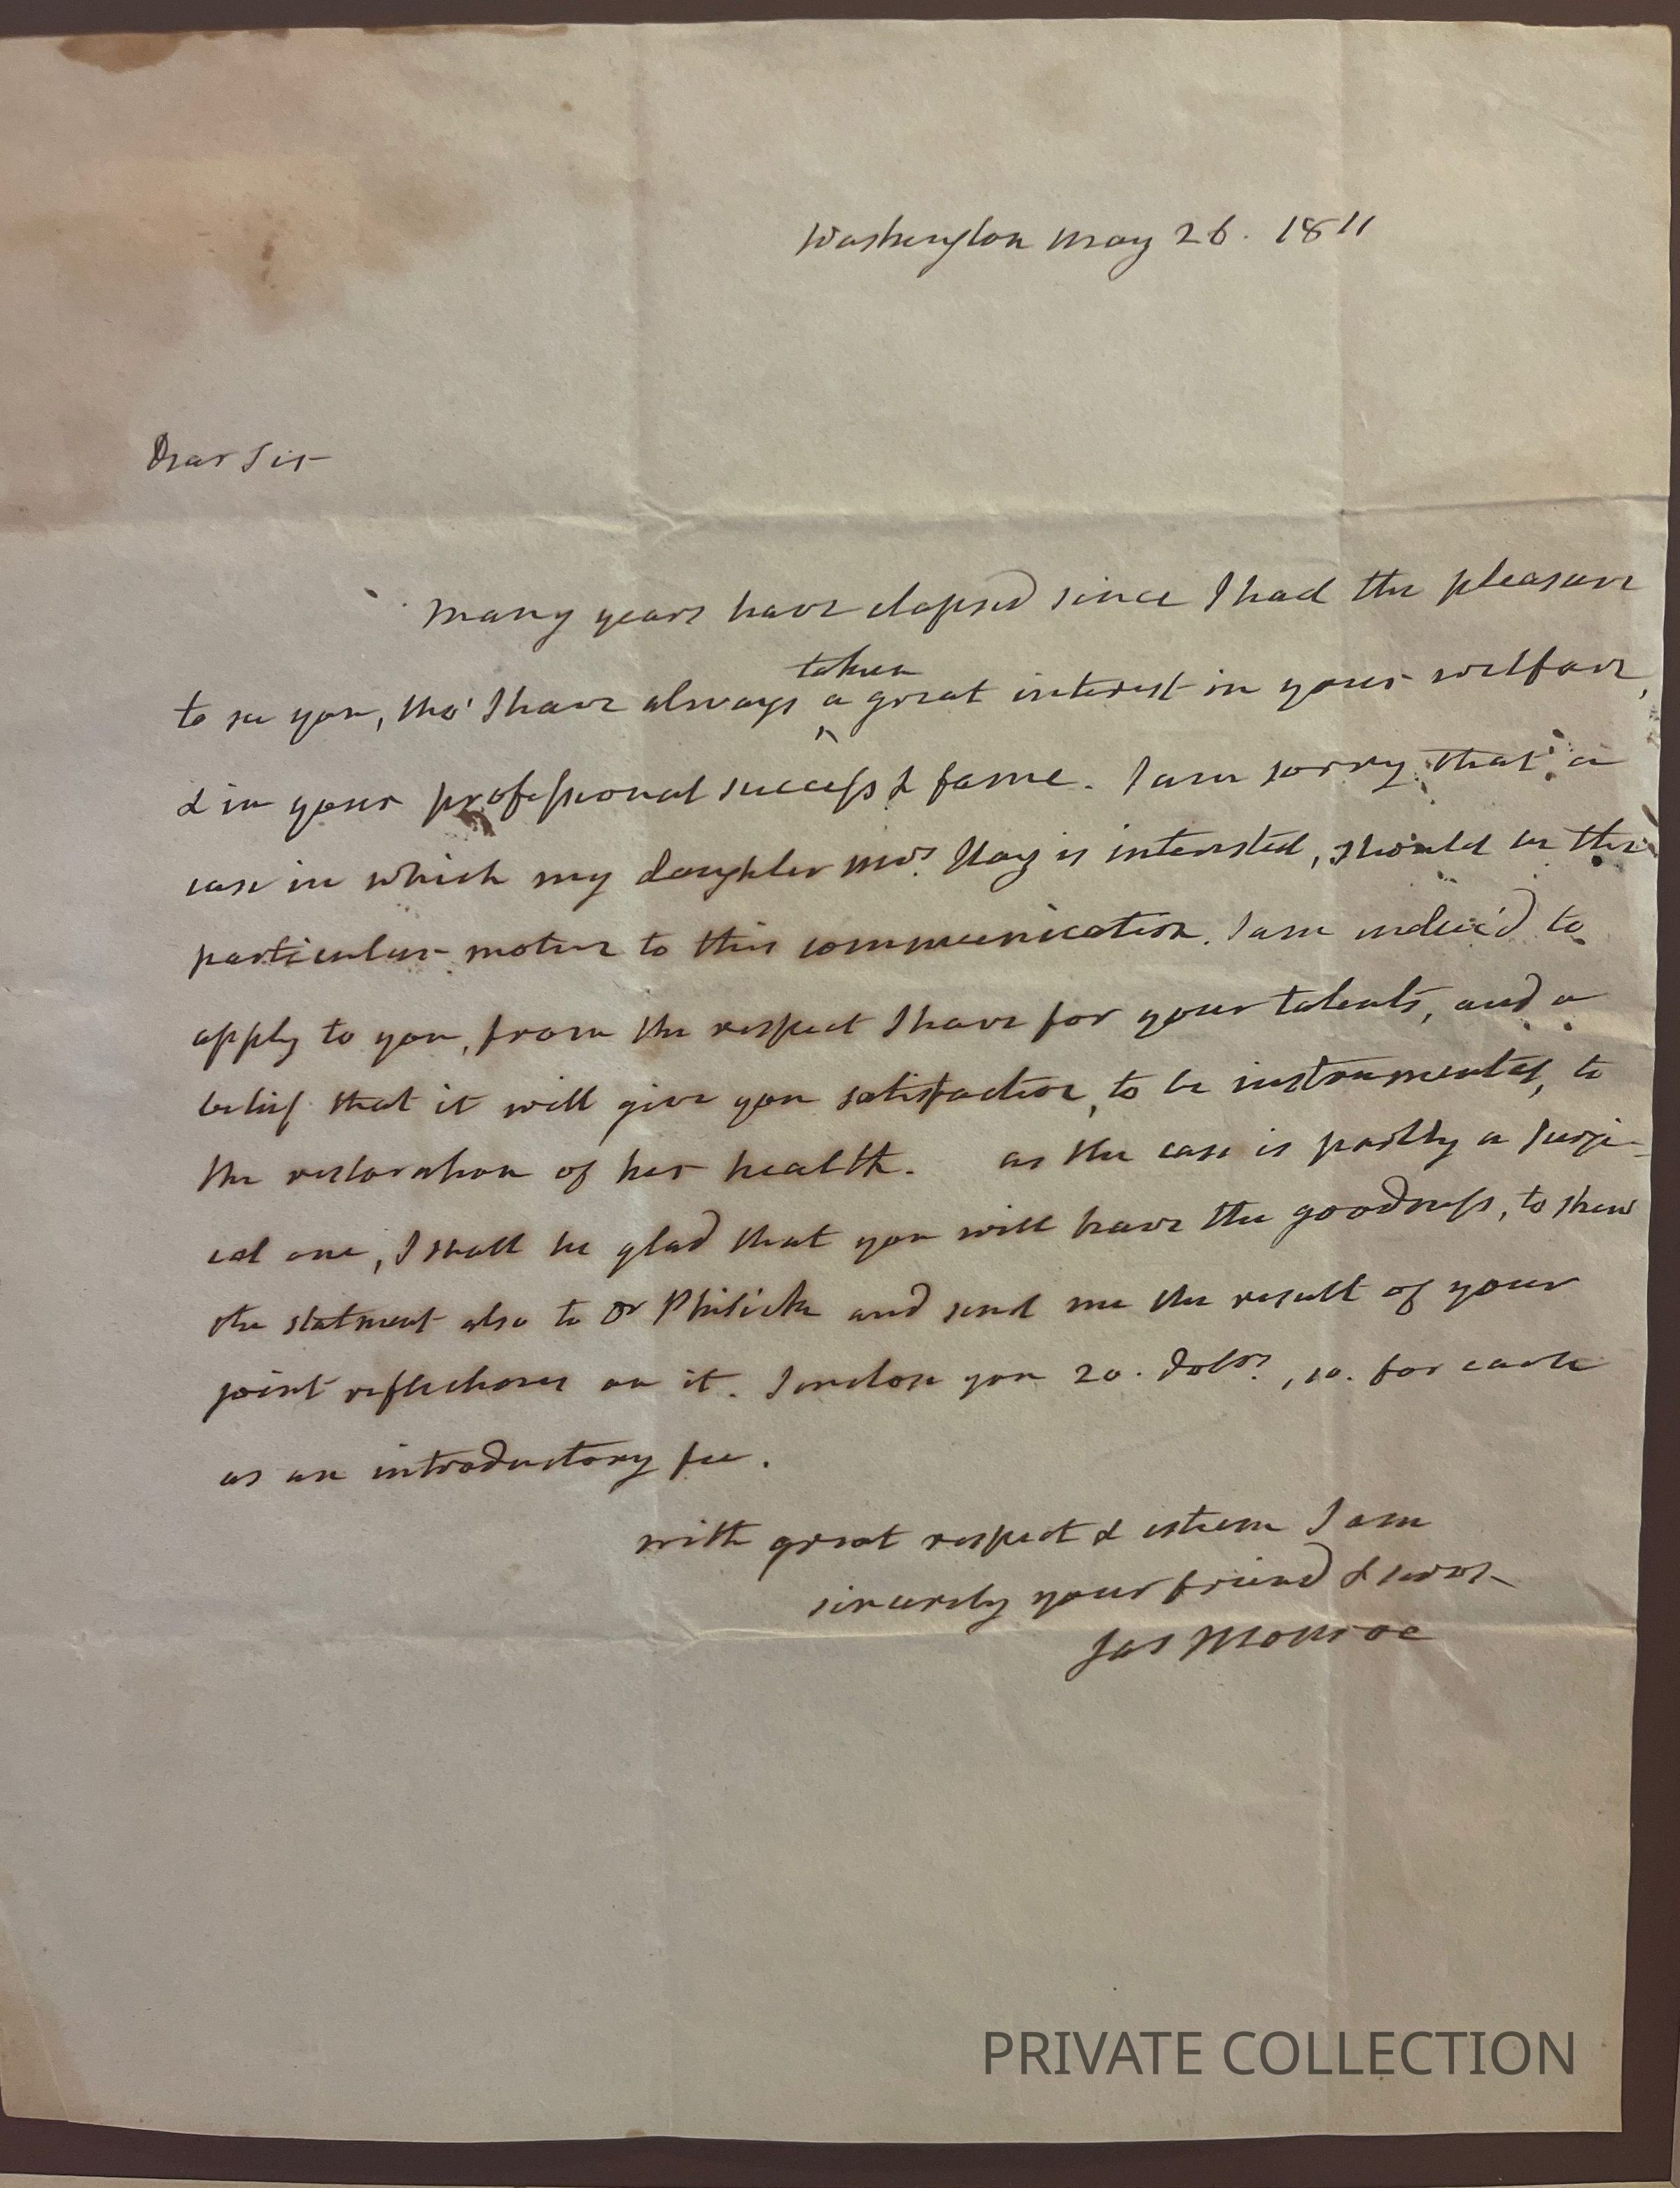 Washington May 26. 1811
Dear Sir
Many years have elapsed since I had the pleasure
taken
to see you, tho' I have always ^ a great interest in your welfare,
& in your professional success & fame. I am sorry that a
case in which my daughter Mrs. Hay is interested, should be the
particular motive to this communication. I am induc'd to
apply to you, from the respect I have for your talents, and a
belief that it will give you satisfaction, to be instrumental, to
the restoration of her health. as the case is partly a surgi-
cal one, I shall be glad that you will have the goodness, to shew
the statment also to Dr and send me the result of your
joint reflections on it. I inclose you 20. dolrs., 10. for each
as an introductory fee.
with great respect & esteem I am
sincerely your friend & servt
Jas Monroe
PRIVATE COLLECTION